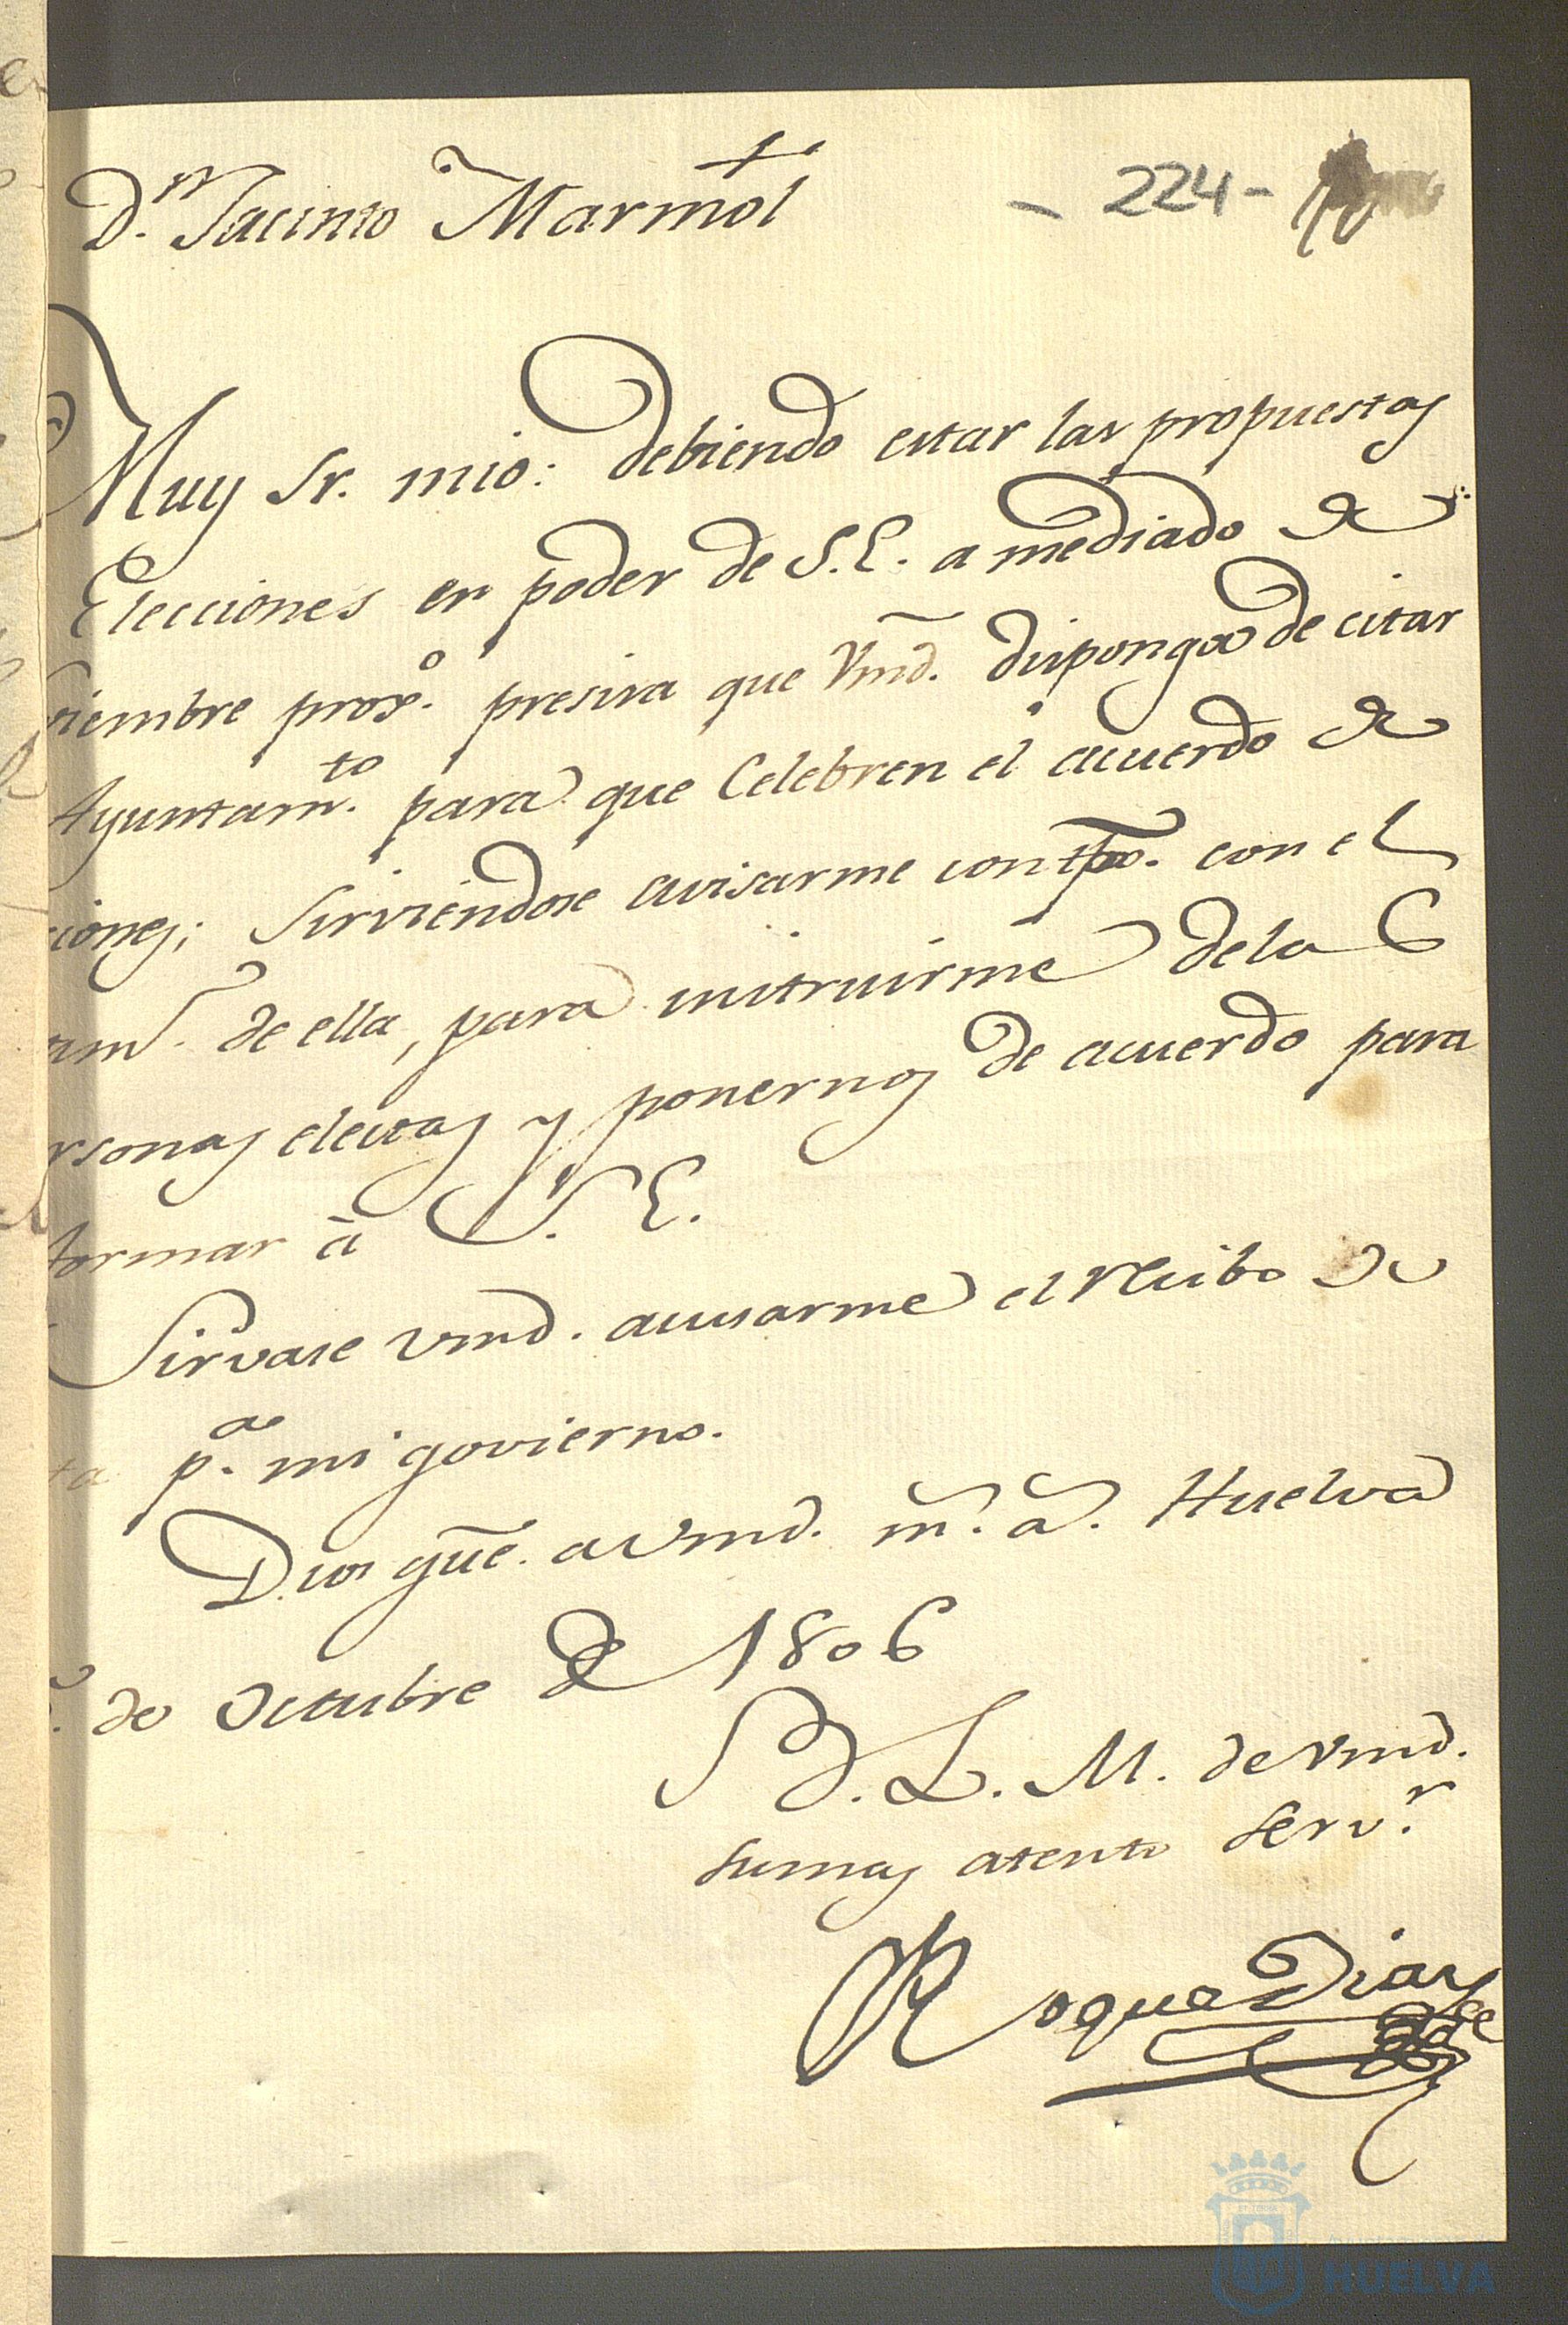 †
Dn. Jacinto Marmol
- 224 -
Muy Sr. mio: debiendo estar las propuestas
Elecciones en poder de S.E. a mediado de
viembre proxo. presisa que Vmd. disponga de citar
Ayuntamto. para que Celebren el acuerdo de
ciones; sirviendose avisarme con tpo. con el
de ella, para instruirme de la
rsonas electas y ponernos de acuerdo para
formar à S. E.
Sirvase vmd. acusarme el recibo de
ta pa. mi govierno.
Dios gue. a Vmd. ms. as. Huelva
de Octubre de 1806
B. L. M. de Vmd.
su mas atento servr.
Roque Diaz
HUELVA